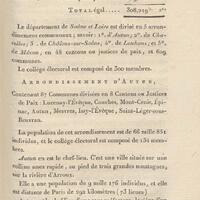 TOTAL égal..... 308,719
Le département de Saône et Loire est divisé en 5 arron-
dissemens communaux; savoir: 1°. d'Autun; 2°. de Cha-
rolles; 3°. de Châlons-sur-Saône; 4°. de Louhans; et 5°.
de Mâcon, en 48 cantons ou justices de paix, et 609
communes.
Le collége électoral est composé de 300 membres.
ARRONDISSEMENT D'AUTUN,
Contenant 87 Communes divisées en 8 Cantons ou Justices
de Paix: Lucenay-l'Évêque, Couches, Mont-Cenis, Épi-
nac, Autun, Mesvres, Issy-l'Évêque, Saint-Léger-sous-
Beuvray.
La population de cet arrondissement est de 66 mille 851
individus, et le collége électoral est composé de 134 mem-
bres.
Autun en est le chef-lieu. C'est une ville située sur une
colline assez rapide, et au pied de trois grandes montagnes,
sur la rivière d'Arroux.
Elle a une population de 9 mille 176 individus, et elle
est distante de Paris de 292 kilomètres (73 lieues)